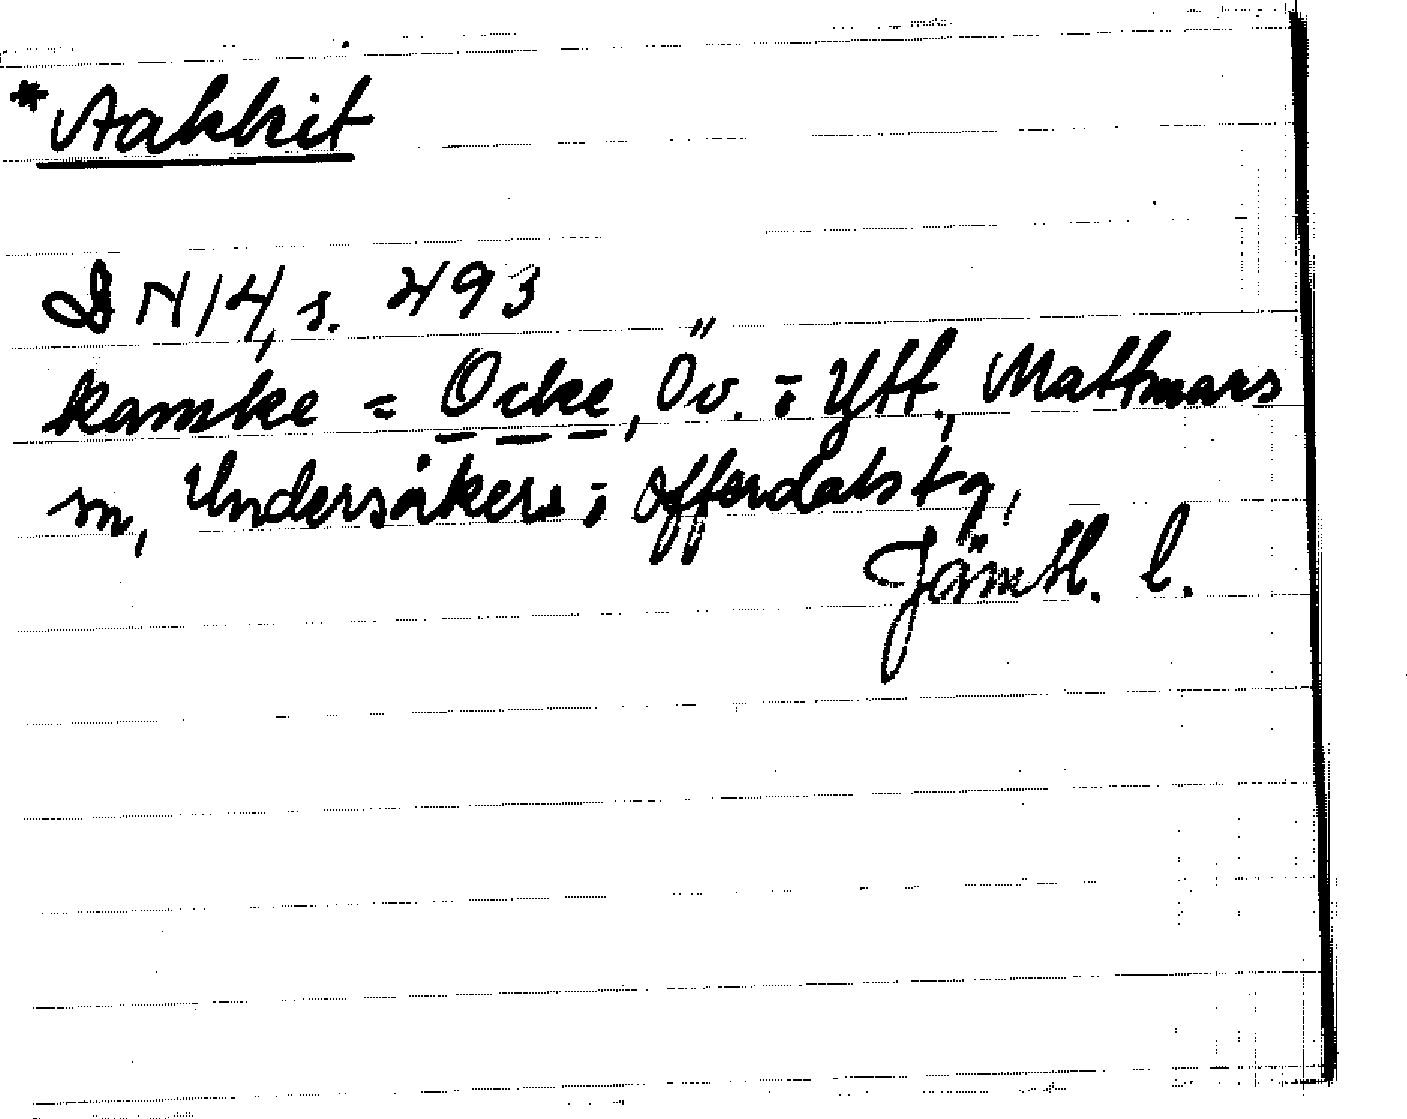 *Aakkit
DN 14, s. 493
kanske = Ocke, Öv. o. Ytt., Mattmars
sn, Undersåkers o. Offerdals tg,
Jämtl. l.